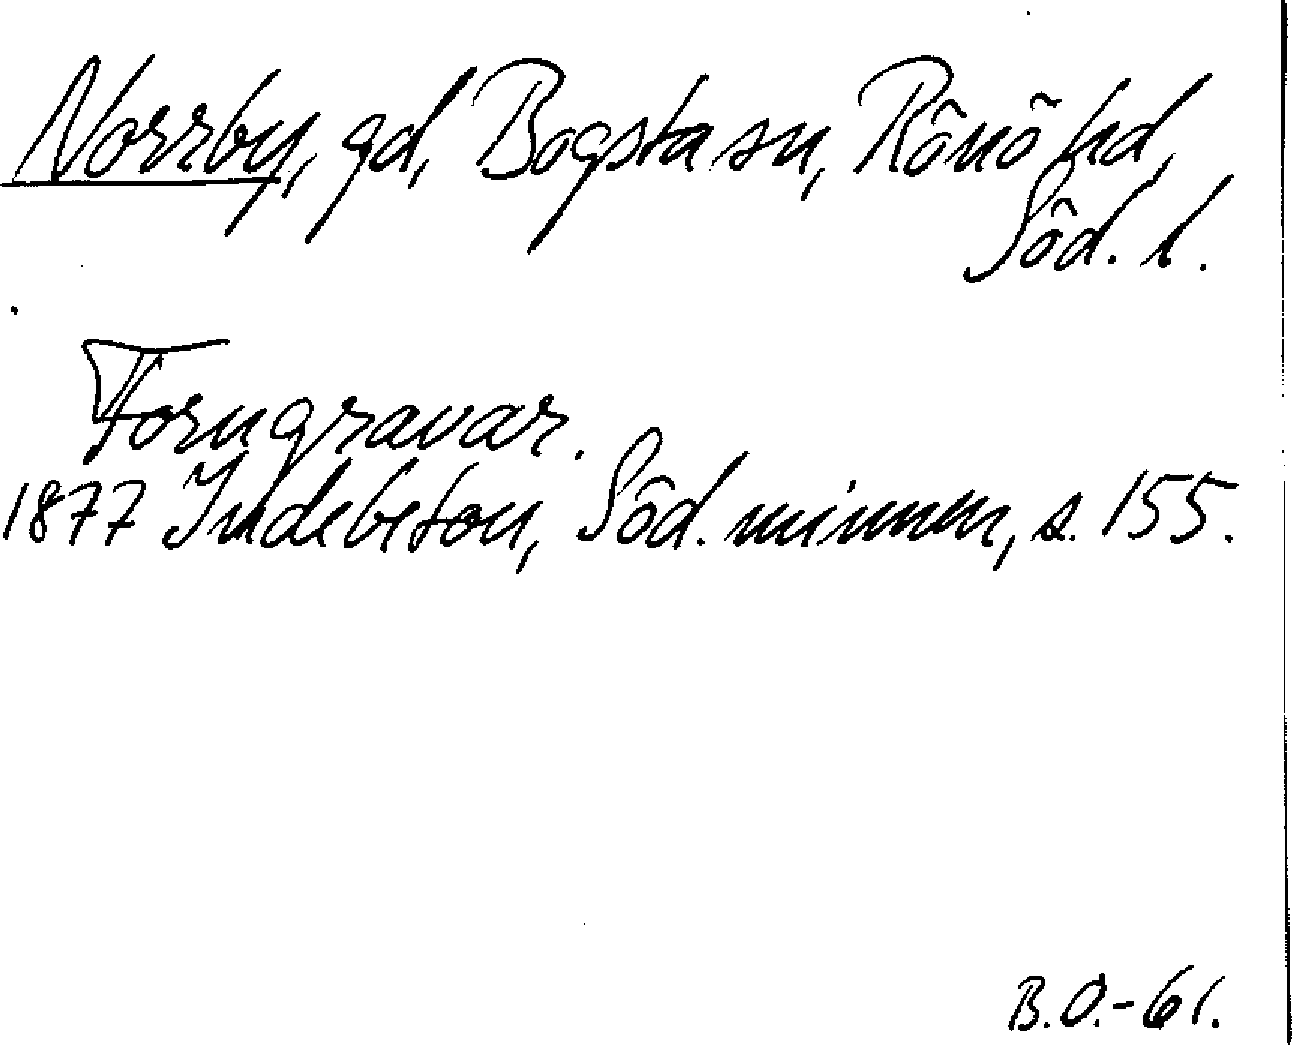 Norrby, gd, Bogsta sn, Rönö hd,
Söd. l.
Forngravar.
1877 Indebetou, Söd. minnen, s. 155.
B.O.-61.